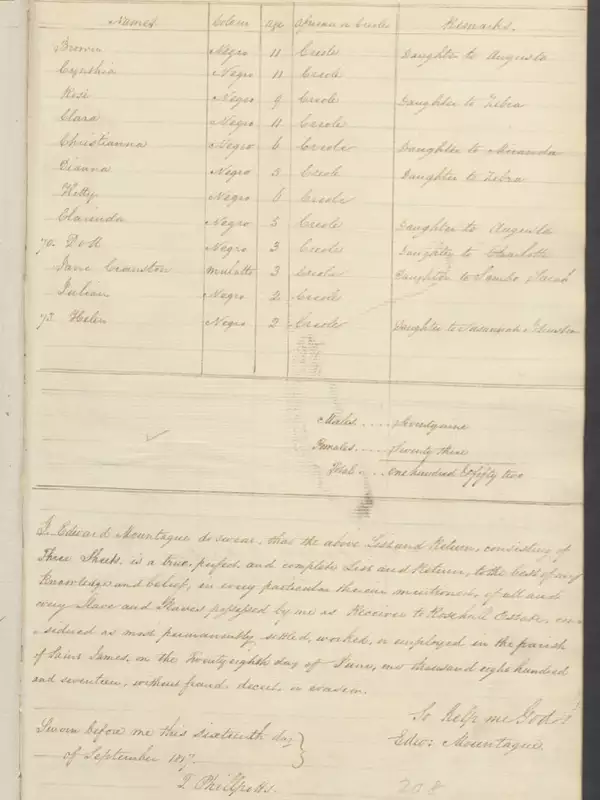 Names. Colour Age African or Creole Remarks.
Brown Negro 11 Creole Daughter to Augusta
Cynthia Negro 11 Creole
Rose Negro 9 Creole Daughter to Zebra
Clara Negro 11 Creole
Christianna Negro 6 Creole Daughter to Miranda
Dianna Negro 5 Creole Daughter to Zebra
Hetty Negro 6 Creole
Clarinda Negro 5 Creole Daughter to Augusta
70. Doll Negro 3 Creole Daughter to Charlotte
Jane Cranston Mulatto 3 Creole Daughter to Sambo Sarah
Julian Negro 2 Creole
73. Helen Negro 2 Creole Daughter to Susannah Johnston
Males .... Seventynine
Females .... Seventy three
Total ... One hundred & fifty two
I Edward Mountague do swear, that the above List and Return, consisting of
Three Sheets, is a true, perfect, and complete List and Return, to the best of my
Knowledge and belief, in every particular therein mentioned, of all and
every Slave and Slaves possessed by me as Receiver to Rosehall Estate, con
-sidered as most permanently, settled, worked, or employed in the parish
of Saint James, on the Twenty eighth day of June, one thousand eight hundred
and seventeen, without fraud, deceit, or evasion.
So help me God!
Sworn before me this sixteenth day
Edwd: Mountague
of September 1817.
T Philpotts.
208